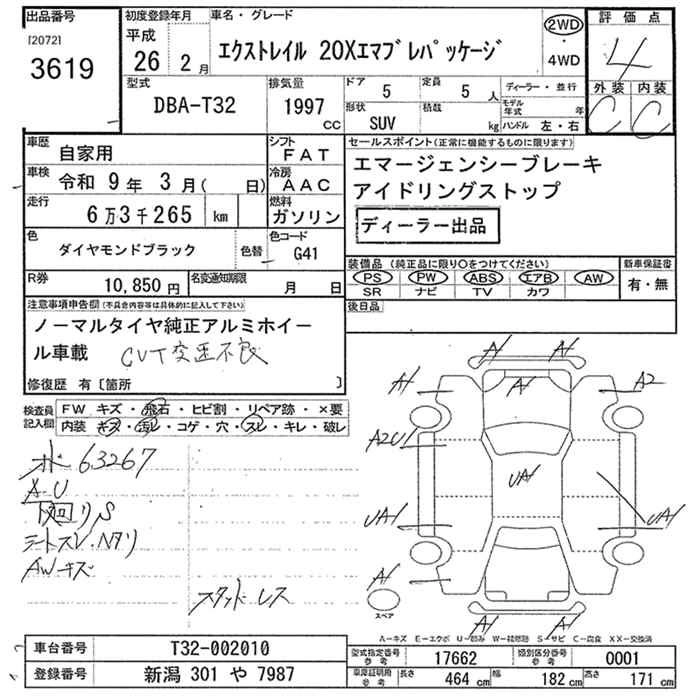 出品番号 初度登録年月 車名・グレード 評価点
[2072] 平成 2WD
3619 26 2月 エクストレイル 20Xエマブレパッケージ ・ 4
4WD
型式 排気量 ドア 5 定員 5人 ディーラー・並行 外装 内装
DBA-T32 1997 cc 形状 SUV 積載 kg モデル年式 年 C C
ハンドル 左・右
車歴 自家用 シフト FAT セールスポイント(正常に機能するものに限ります)
車検 令和 9年 3月( 日) 冷房 AAC エマージェンシーブレーキ
走行 6万3千265 km 燃料 ガソリン アイドリングストップ
ディーラー出品
色 ダイヤモンドブラック 色替 色コード G41
装備品(純正品に限り○をつけてください) 新車保証書
R券 10,850円 名変通知期限 月 日 PS PW ABS エアB AW 有・無
SR ナビ TV カワ
注意事項申告欄(不具合内容等は具体的に記入して下さい) 後日品
ノーマルタイヤ純正アルミホイー
ル車載 CVT 不良
修復歴 有〔箇所 〕
検査員 FW キズ・飛石・ヒビ割・リペア跡・×要
記入欄 内装 キズ・汚レ・コゲ・穴・スレ・キレ・破レ
A1 A1
A1 A1 A2
63267 A2U1
AU UA1
下回りS UA1 UA1
シートスレ・
AWキズ A1
スタッドレス スペア
A1 A1
A-キズ E-エクボ U-凹み W-補修跡 S-サビ C-腐食 XX-交換済
車台番号 T32-002010 型式指定番号 参考 17662 類別区分番号 参考 0001
登録番号 新潟 301 や 7987 車庫証明用 参考 長さ 464cm 幅 182cm 高さ 171cm